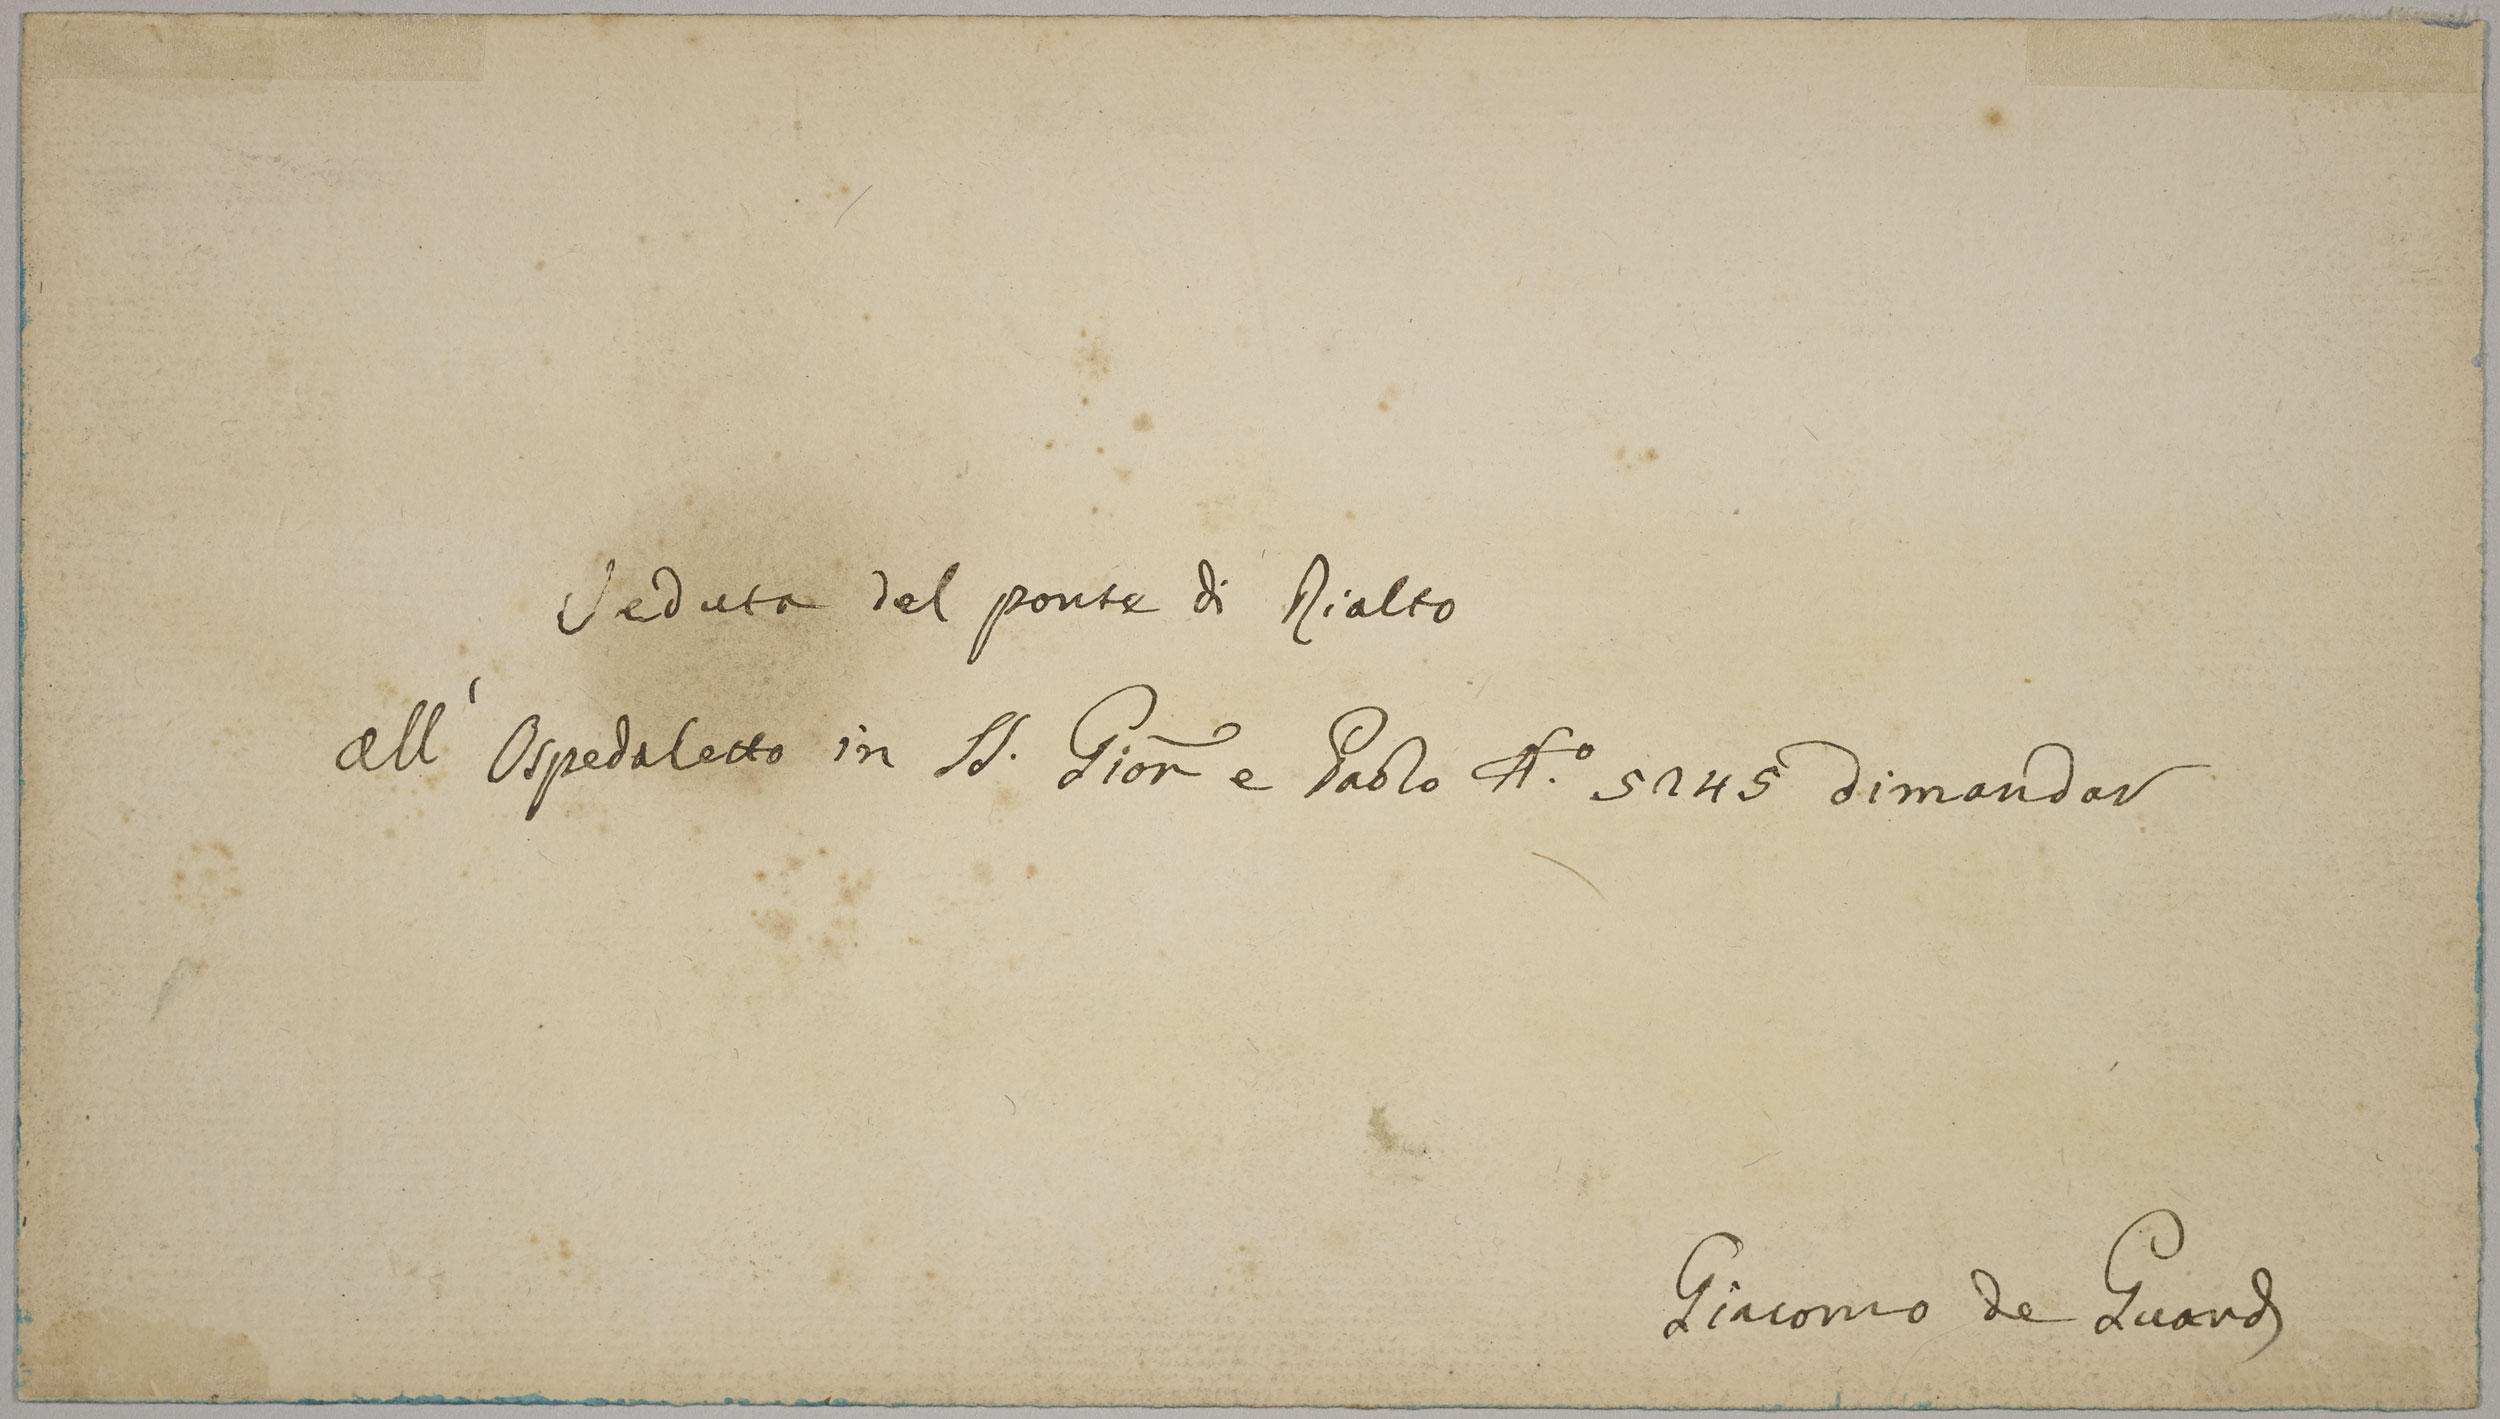 Veduta del ponte di Rialto
all' Ospedaletto in SS. Gio͞n e Paolo N.o 5245 dimandar
Giacomo de Guardi